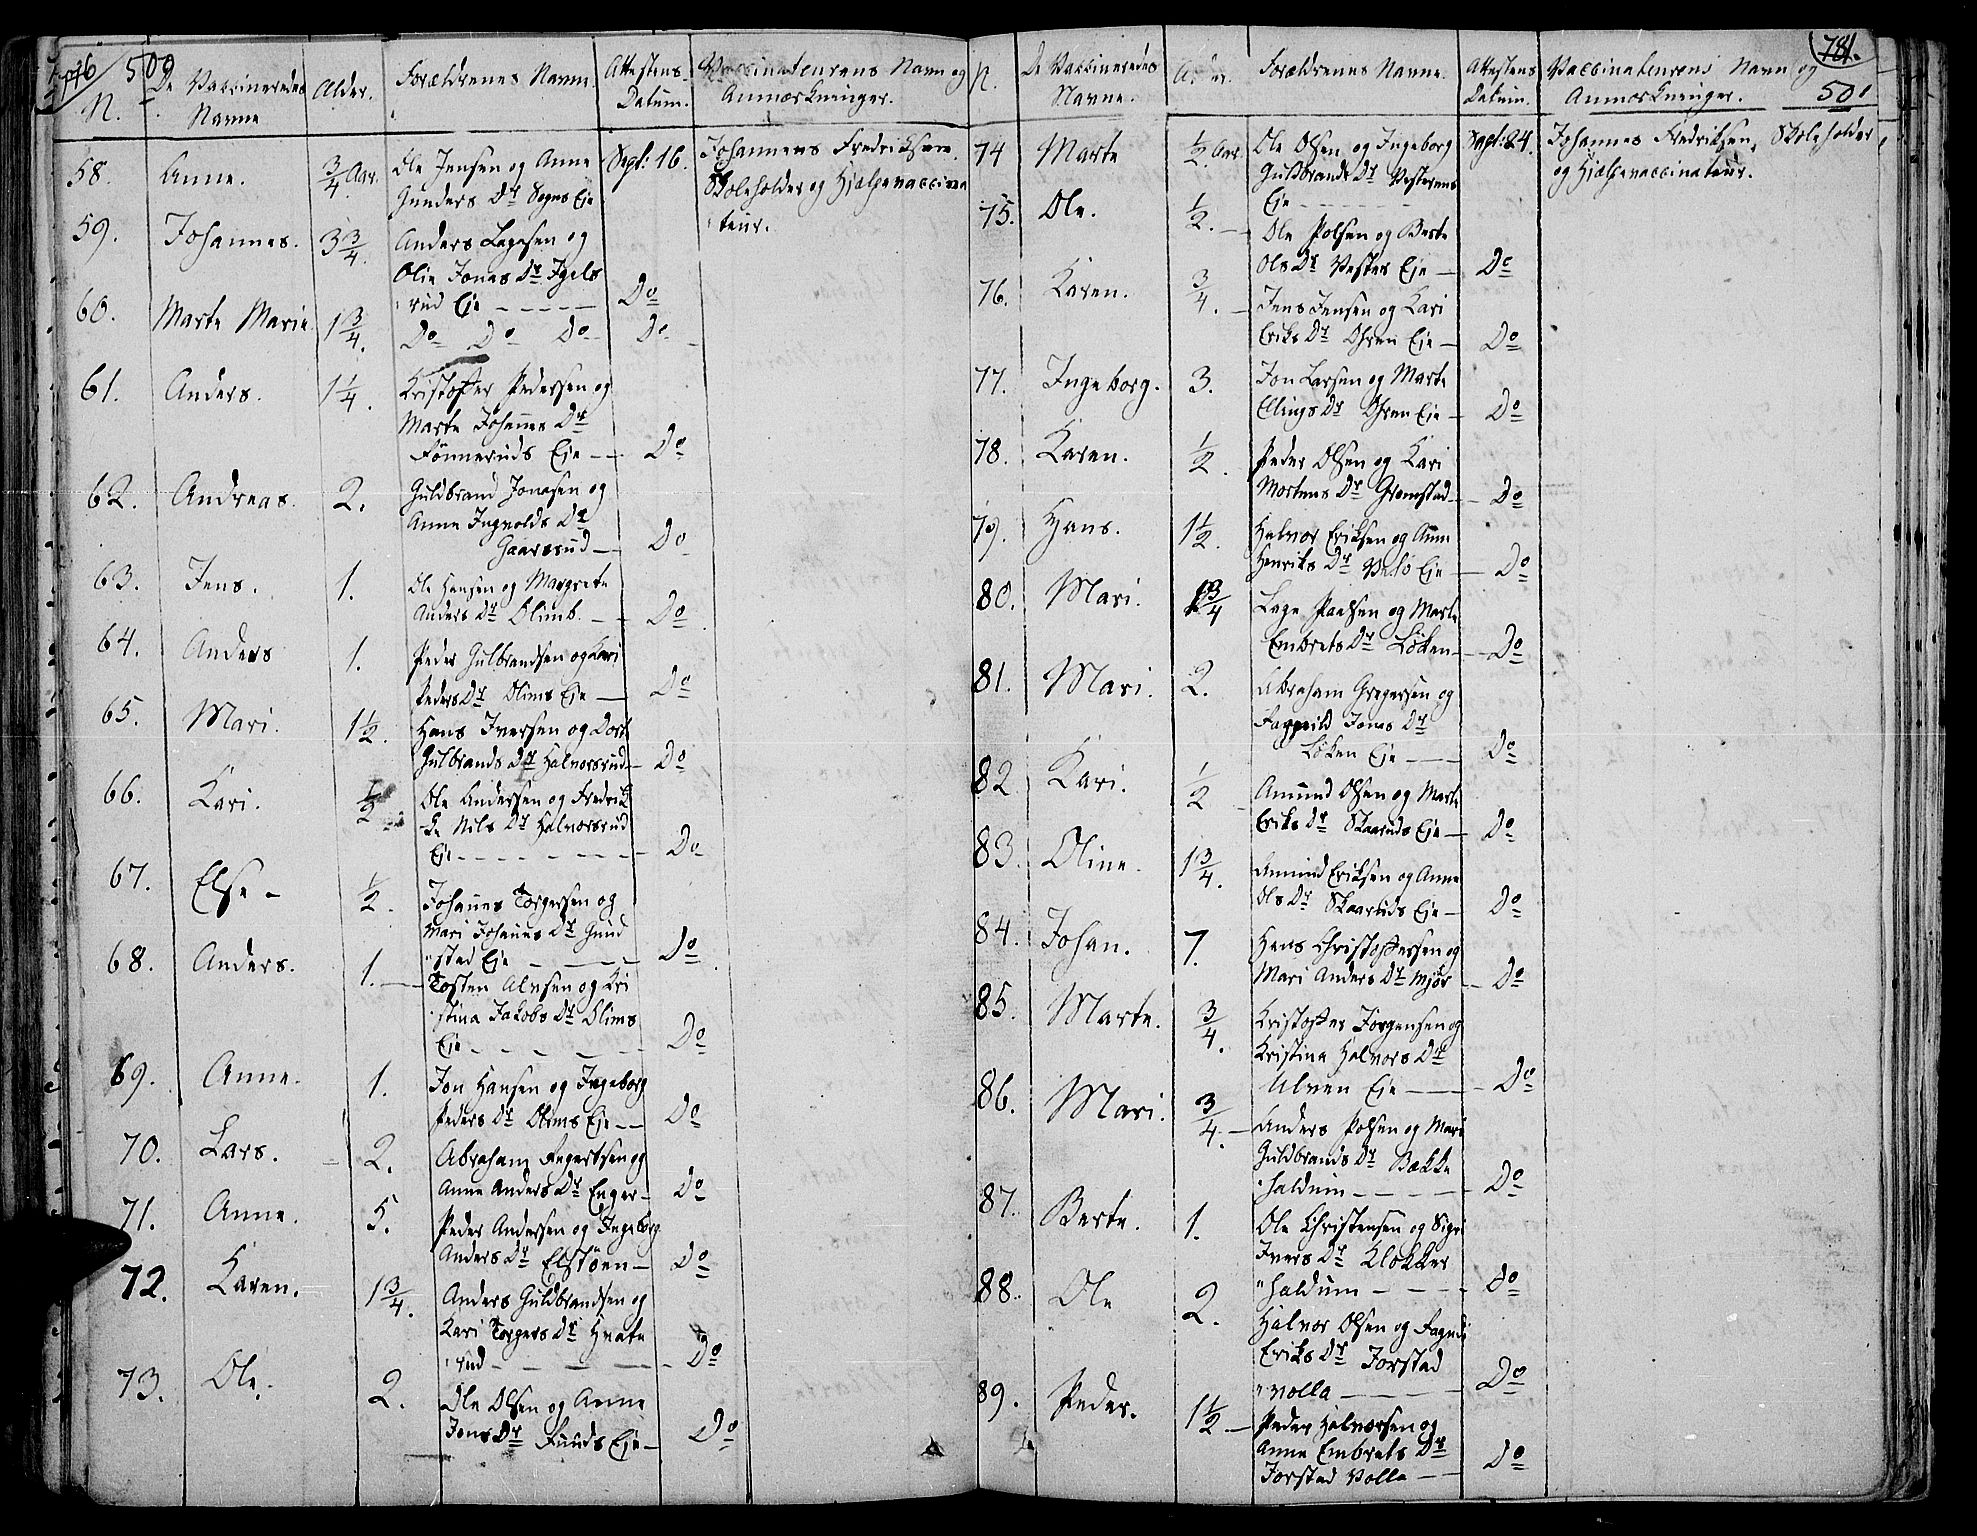 500
N.
De Vaccineredes Navne
Alder.
Forældrenes Navne
Attestens Datum.
Vaccinateurens Navn og Anmærkninger.
58. Anne. 3/4 Aar. Ole Jensen og Anne Sept: 16. Johannes Fredriksen.
Gunders Dr Sogns Eje Skoleholder og Hjælpevaccina
teur.
59. Johannes. 3 3/4. Anders Lagesen og
Olia Jonas Dr Igels
rud Eje - - - - - Do
60. Marte Marie 1 3/4. Do Do Do Do
61. Anders. 1 1/4. Kristoffer Pedersen og
Marte Johannes Dr
Fonneruds Eje - - Do
62. Andreas. 2. Guldbrand Jonasen og
Anne Ingvolds Dr
Gaarsrud - Do
63. Jens. 1. Ole Hansen og Margrete
Anders Dr Olimb. - - Do
64. Anders 1. Peder Gulbrandsen og Kari
Peders Dr Olims Eje - Do
65. Mari. 1 1/2. Hans Iversen og Dort
Gulbrands Dr Halvorsrud - Do
66. Kari. 1/2 Ole Andersen og Fredrik
ke Nils Dr Halvorsrud
Eje - - - - - - - - Do
67. Else - 1/2. Johannes Torgersen og
Mari Johannes Dr Guud
stad Eje - - - - - Do
68. Anders. 1. Tosten Alvsen og Kri
stina Jakobs Dr Olims
Eje - - - - - - Do
69. Anne. 1. Jon Hansen og Ingeborg
Peders Dr Olims Eje - - Do
70. Lars. 2. Abraham Engertsen og
Anne Anders Dr Enger - Do
71. Anne. 5. Peder Andersen og Ingeborg
Anders Dr Elstöen - Do
72. Karen. 1 3/4. Anders Guldbrandsen og
Kari Torgers Dr Hvate
rud - - - - - Do
73. Ole. 2. Ole Olsen og Anne
Jons Dr Eje - Do
781.
501
N.
De Vaccineredes Navne.
Forældrenes Navne.
Attestens Datum.
Vaccinateurens Navn og Anmærkninger.
74 Marte 1/2 Aar. Ole Olsen og Ingeborg Sept: 24. Johannes Fredriksen, Skoleholder
Guldbrands Dr Vesterens og Hjælpevaccinateur.
Eje - - - - - -
75. Ole. 1/2. - Ole Polsen og Berte
Ols Dr Vester Eje - Do
76. Karen. 3/4. - Jens Jensen og Kari
Eriks Dr Ohren Eje - Do
77. Ingeborg. 3. Jon Larsen og Marte
Ellings Dr Ohren Eje - Do
78. Karen. 1/2. Peder Olsen og Kari
Mortens Dr Gromstad - Do
79. Hans. 1 1/2. Halvor Eriksen og Anne
Henriks Dr Eje - Do
80. Mari. 1 3/4 Lage Paalsen og Marte
Embrets Dr Löken - Do
81. Mari. 2. Abraham Gregersen og
Jons Dr
Löken Eje - - - Do
82 Kari. 1/2 Amund Olsen og Marte
Eriks Dr Skaaruds Eje - Do
83. Oline. 1 3/4. Amund Eriksen og Anne
Ols Dr Skaaruds Eje - Do
84. Johan. 7. Hans Christoffersen og
Mari Anders Dr Mjör - Do
85. Marte. 3/4. Kristoffer Jörgensen og
Kristina Halvors Dr
Ulven Eje - - - Do
86. Mari. 3/4. - Anders Polsen og Mari
Guldbrands Dr Bække
haldum - - - - - Do
87. Berte. 1. Ole Christensen og Sigri
Ivers Dr Klokker
haldum - - - - do
88. Ole 2. Halvor Olsen og
Eriks Dr Jorstad
volla - - - - Do
89. Peder. 1 1/2 - Peder Halvorsen og
Anne Embrets Dr
Jorstad Volla - - Do